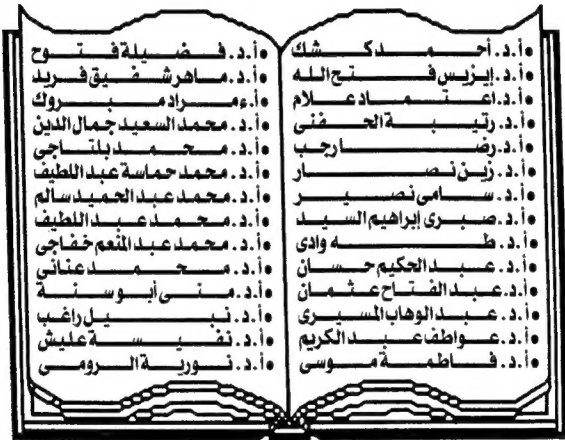 • أ.د. أحمد كشك
• أ.د. إيزيس فتح الله
• أ.د. اعتماد علام
• أ.د. رتيبة الحفنى
• أ.د. رضا رجب
• أ.د. زين نصار
• أ.د. سامى نصير
• أ.د. صبرى إبراهيم السيد
• أ.د. طه وادى
• أ.د. عبد الحكيم حسان
• أ.د. عبد الفتاح عثمان
• أ.د. عبد الوهاب المسيرى
• أ.د. عواطف عبد الكريم
• أ.د. فاطمة موسى
• أ.د. فضيلة فتوح
• أ.د. ماهر شفيق فريد
• أ.ء مراد مبروك
• أ.د. محمد السعيد جمال الدين
• أ.د. محمد بلتاجى
• أ.د. محمد حماسة عبد اللطيف
• أ.د. محمد عبد الحميد سالم
• أ.د. محمد عبد اللطيف
• أ.د. محمد عبد المنعم خفاجى
• أ.د. محمد عنانى
• أ.د. منى أبو سنة
• أ.د. نبيل راغب
• أ.د. نفيسة عليش
• أ.د. نورية الرومى